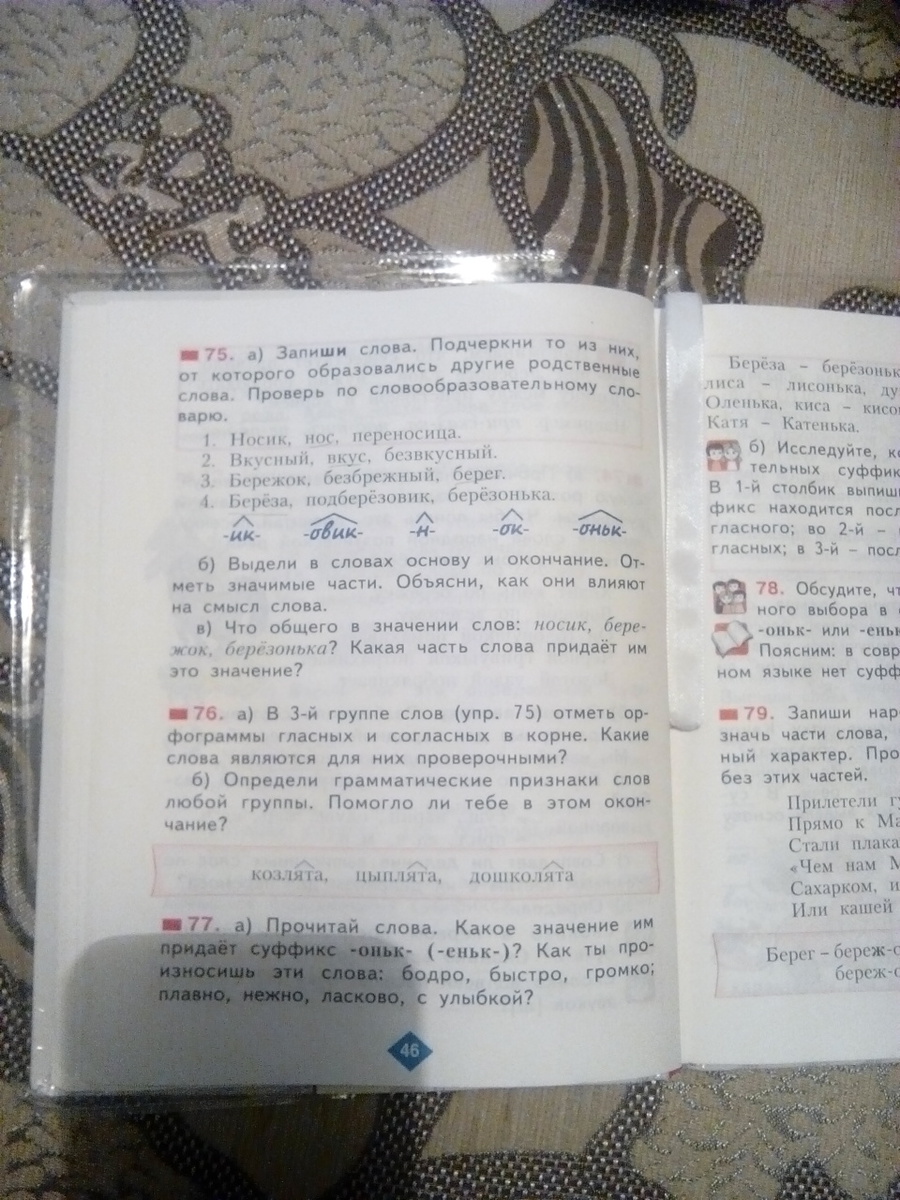 75. а) Запиши слова. Подчеркни то из них,
от которого образовались другие родственные
слова. Проверь по словообразовательному сло-
варю.
1. Носик, нос, переносица.
2. Вкусный, вкус, безвкусный.
3. Бережок, безбрежный, берег.
4. Берёза, подберёзовик, берёзонька.
-ик- -овик- -н- -ок- -оньк-
б) Выдели в словах основу и окончание. От-
меть значимые части. Объясни, как они влияют
на смысл слова.
в) Что общего в значении слов: носик, бере-
жок, берёзонька? Какая часть слова придаёт им
это значение?
76. а) В 3-й группе слов (упр. 75) отметь ор-
фограммы гласных и согласных в корне. Какие
слова являются для них проверочными?
б) Определи грамматические признаки слов
любой группы. Помогло ли тебе в этом окон-
чание?
козлята, цыплята, дошколята
77. а) Прочитай слова. Какое значение им
придаёт суффикс -оньк- (-еньк-)? Как ты про-
износишь эти слова: бодро, быстро, громко;
плавно, нежно, ласково, с улыбкой?
46
Берёза – берёзоньк
лиса – лисонька, ду
Оленька, киса – кисо
Катя – Катенька.
б) Исследуйте, ко
тельных суффик
В 1-й столбик выпиши
фикс находится посл
гласного; во 2-й –
гласных; в 3-й – посл
78. Обсудите, чт
ного выбора в с
-оньк- или -еньк
Поясним: в совр
ном языке нет суфф
79. Запиши нар
значь части слова,
ный характер. Про
без этих частей.
Прилетели гу
Прямо к Ма
Стали плака
«Чем нам М
Сахарком, и
Или кашей
Берег – береж-о
береж-о